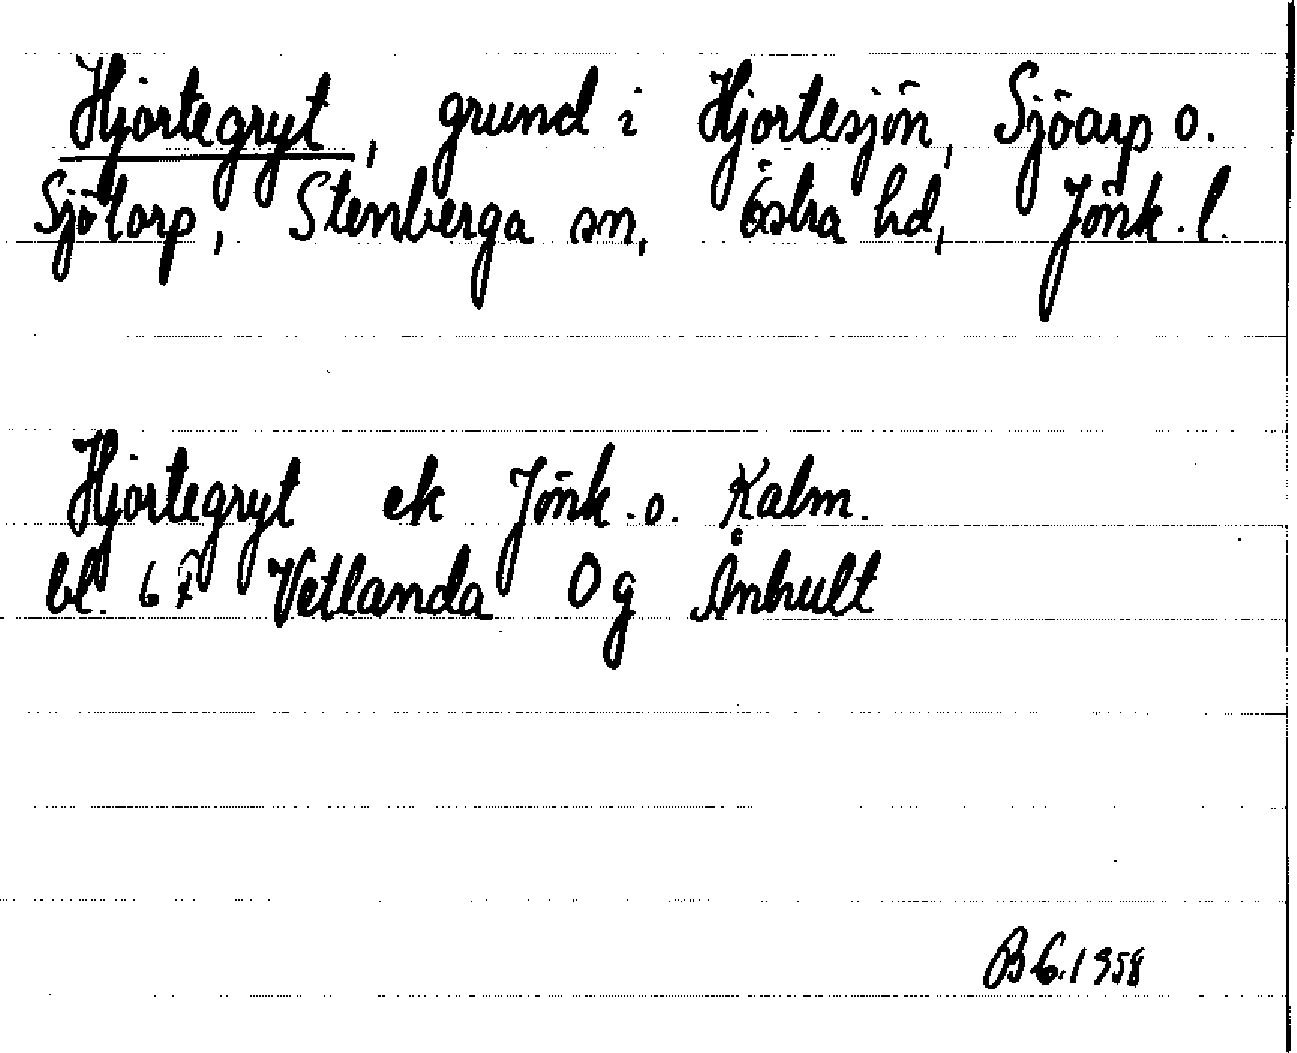 Hjortegryt, grund i Hjortesjön, Sjöarp o.
Sjötorp, Stenberga sn, Östra hd, Jönk. l.
Hjortegryt ek Jönk. o. Kalm.
bl. 6 f Vetlanda Og Århult
B6.1958